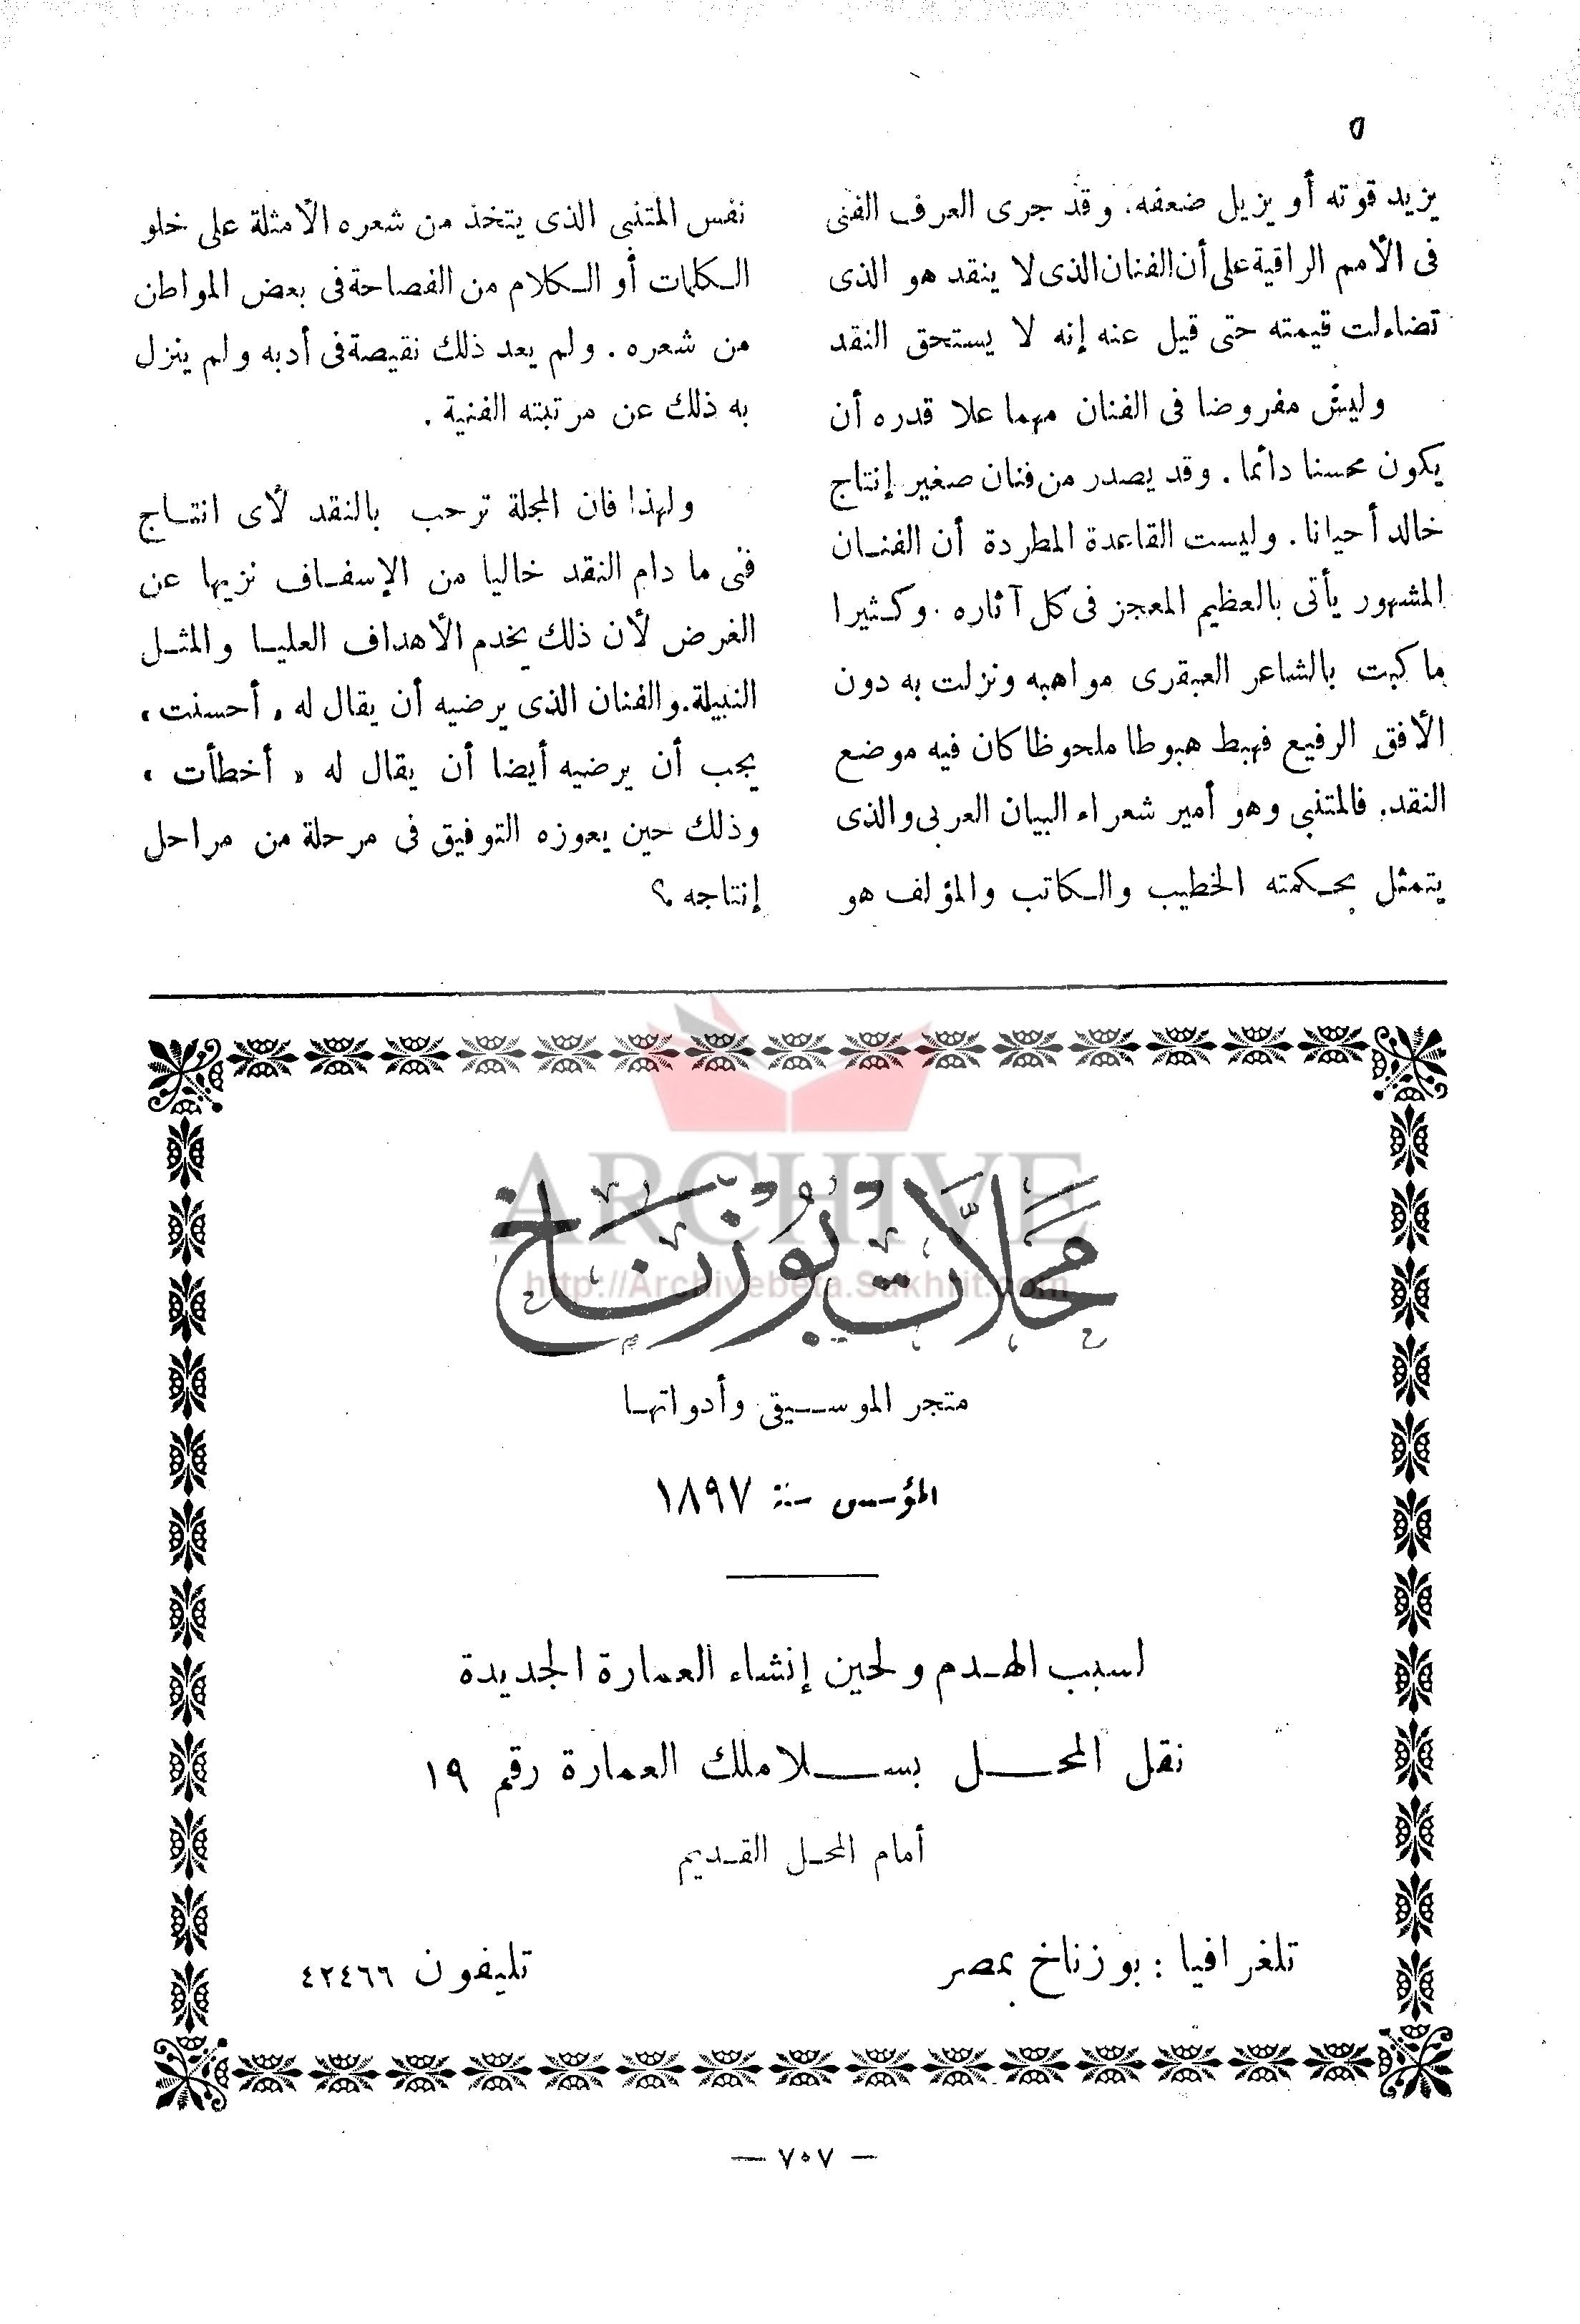 ٥
يزيد قوته أو يزيل ضعفه. وقد جرى العرف الفنى
فى الأمم الراقية على أن الفنان الذى لا ينقد هو الذى
تضاءلت قيمته حتى قيل عنه إنه لا يستحق النقد
وليس مفروضا فى الفنان مهما علا قدره أن
يكون محسنا دائما . وقد يصدر من فنان صغير إنتاج
خالد أحيانا. وليست القاعدة المطردة أن الفنان
المشهور يأتى بالعظيم المعجز فى كل آثاره . وكثيرا
ما كبت بالشاعر العبقرى مواهبه ونزلت به دون
الأفق الرفيع فهبط هبوطا ملحوظا كان فيه موضع
النقد. فالمتنبى وهو أمير شعراء البيان العربى والذى
يتمثل بحكمته الخطيب والكاتب والمؤلف هو
نفس المتنبى الذى يتخذ من شعره الأمثلة على خلو
الكلمات أو الكلام من الفصاحة فى بعض المواطن
من شعره . ولم يعد ذلك نقيصة فى أدبه ولم ينزل
به ذلك عن مرتبته الفنية .
ولهذا فان المجلة ترحب بالنقد لأى انتاج
فنى ما دام النقد خاليا من الإسفاف نزيها عن
الغرض لأن ذلك يخدم الأهداف العليا والمثل
النبيلة. والفنان الذى يرضيه أن يقال له « أحسنت »
يجب أن يرضيه أيضا أن يقال له « أخطأت »
وذلك حين يعوزه التوفيق فى مرحلة من مراحل
إنتاجه ؟
ARCHIVE
http://Archivebeta.Sakhrit.com
محلات بوزناخ
متجر الموسيقى وأدواتها
المؤسس سنة ١٨٩٧
لسبب الهدم ولحين إنشاء العمارة الجديدة
نقل المحل بسلاملك العمارة رقم ١٩
أمام المحل القديم
تلغرافيا : بوزناخ بمصر
تليفون ٤٢٤٦٦
— ٧٠٧ —